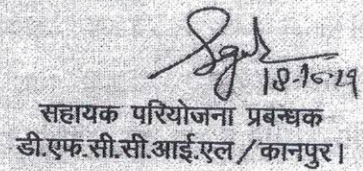 18-10-19
सहायक परियोजना प्रबन्धक
डी.एफ.सी.सी.आई.एल/कानपुर।